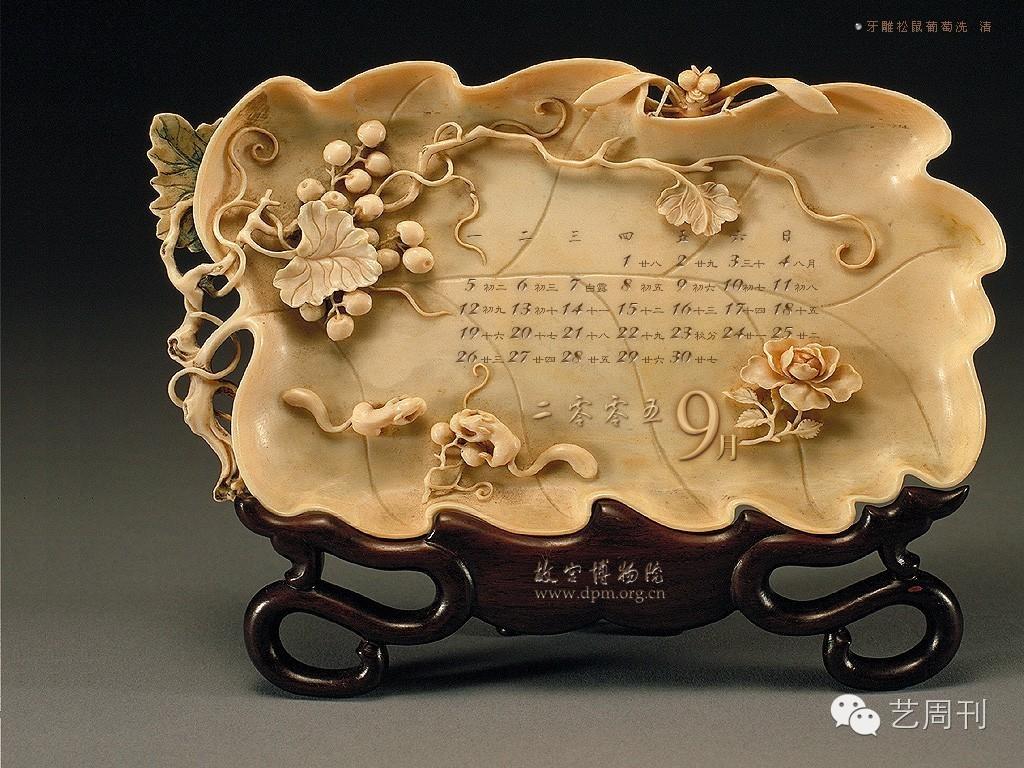 牙雕松鼠葡萄洗 清
一 二 三 四 五 六 日
1 廿八 2 廿九 3 三十 4 八月
5 初二 6 初三 7 白露 8 初五 9 初六 10 初七 11 初八
12 初九 13 初十 14 十一 15 十二 16 十三 17 十四 18 十五
19 十六 20 十七 21 十八 22 十九 23 秋分 24 廿一 25 廿二
26 廿三 27 廿四 28 廿五 29 廿六 30 廿七
二零零五 9月
故宫博物院
www.dpm.org.cn
艺周刊